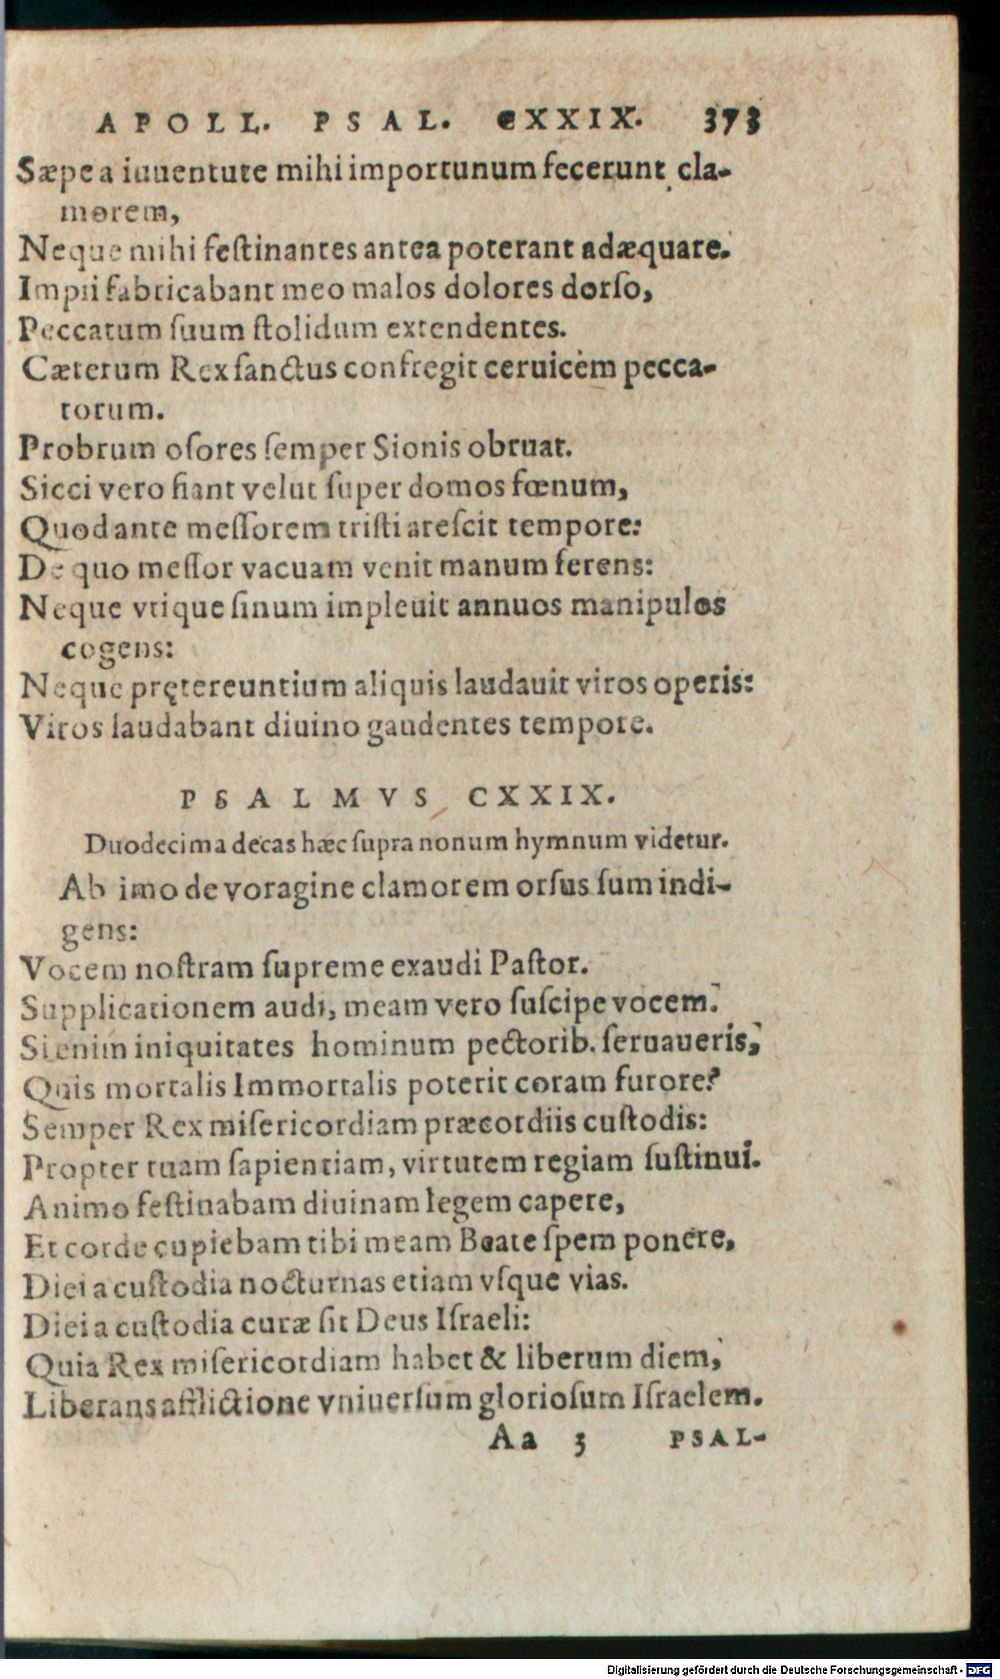 APOLL. PSAL. CXXIX. 373
Sæpe a iuuentute mihi importunum fecerunt cla-
morem,
Neque mihi feſtinantes antea poterant adæquare.
Impii fabricabant meo malos dolores dorſo,
Peccatum ſuum ſtolidum extendentes.
Cæterum Rex ſanctus confregit ceruicem pecca-
torum.
Probrum oſores ſemper Sionis obruat.
Sicci vero fiant velut ſuper domos fœnum,
Quod ante meſſorem triſti areſcit tempore:
De quo meſſor vacuam venit manum ferens:
Neque vtique ſinum impleuit annuos manipulos
cogens:
Neque prętereuntium aliquis laudauit viros operis:
Viros laudabant diuino gaudentes tempore.
PSALMVS CXXIX.
Duodecima decas hæc ſupra nonum hymnum videtur.
Ab imo de voragine clamorem orſus ſum indi-
gens:
Vocem noſtram ſupreme exaudi Paſtor.
Supplicationem audi, meam vero ſuſcipe vocem.
Si enim iniquitates hominum pectorib. ſeruaueris,
Quis mortalis Immortalis poterit coram furore?
Semper Rex miſericordiam præcordiis cuſtodis:
Propter tuam ſapientiam, virtutem regiam ſuſtinui.
Animo feſtinabam diuinam legem capere,
Et corde cupiebam tibi meam Beate ſpem ponere,
Diei a cuſtodia nocturnas etiam vſque vias.
Diei a cuſtodia curæ ſit Deus Iſraeli:
Quia Rex miſericordiam habet & liberum diem,
Liberans afflictione vniuerſum glorioſum Iſraelem.
Aa 3 PSAL-
Digitalisierung gefördert durch die Deutsche Forschungsgemeinschaft - DFG